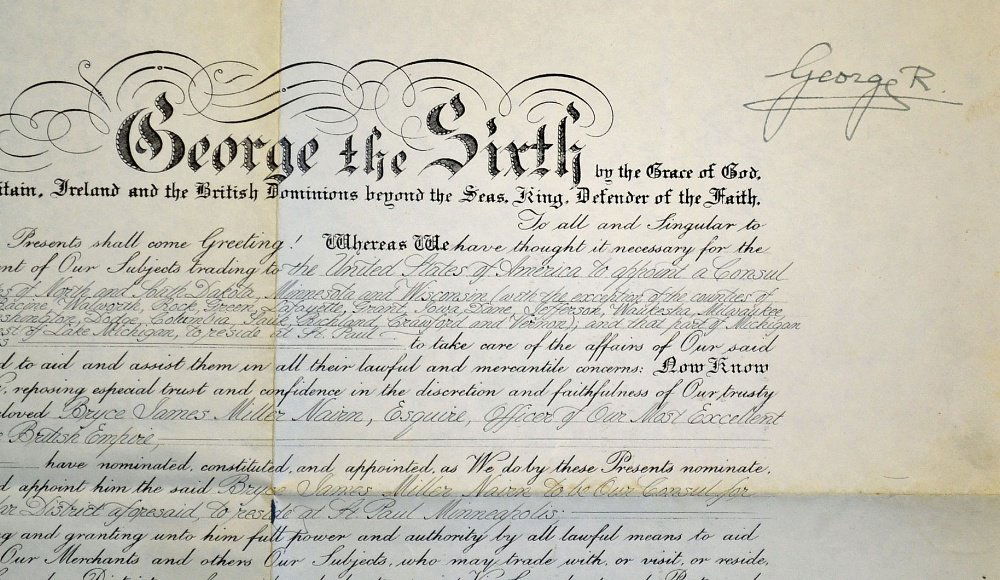 George R.
George the Sixth by the Grace of God,
itain, Ireland and the British Dominions beyond the Seas, King, Defender of the Faith,
To all and Singular to
Presents shall come Greeting! Whereas We have thought it necessary for the
nt of Our Subjects trading to the United States of America to appoint a Consul
es of North and South Dakota, Minnesota and Wisconsin (with the exception of the counties of
Racine, Walworth, Rock, Green, Lafayette, Grant, Iowa, Dane, Jefferson, Waukesha, Milwaukee,
ashington, Dodge, Columbia, Sauk, Richland, Crawford and Vernon); and that part of Michigan
est of Lake Michigan, to reside at St. Paul to take care of the affairs of Our said
d to aid and assist them in all their lawful and mercantile concerns: Now Know
, reposing especial trust and confidence in the discretion and faithfulness of Our trusty
eloved Bryce James Miller Nairn, Esquire, Officer of Our Most Excellent
e British Empire,
have nominated, constituted, and appointed, as We do by these Presents nominate,
d appoint him the said Bryce James Miller Nairn to be Our Consul for
ar District aforesaid, to reside at St Paul Minneapolis:
ng and granting unto him full power and authority by all lawful means to aid
Our Merchants and others Our Subjects, who may trade with, or visit, or reside,